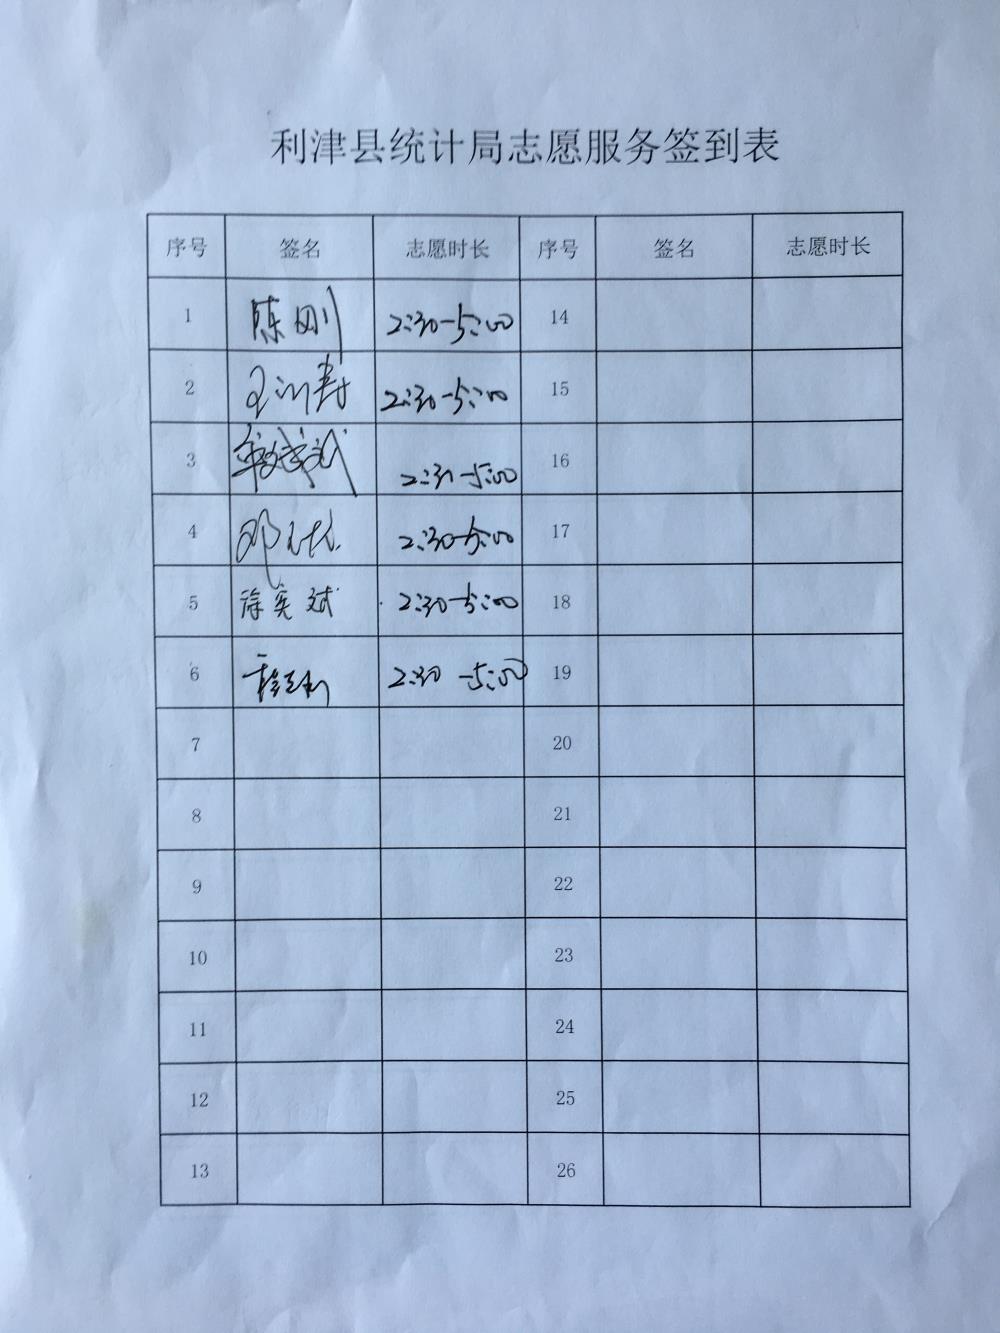 利津县统计局志愿服务签到表
序号 签名 志愿时长 序号 签名 志愿时长
1 陈刚 2:30-5:00 14
2 2:30-5:00 15
3 2:30-5:00 16
4 邓 2:30-5:00 17
5 徐奕斌 2:30-5:00 18
6 2:30-5:00 19
7 20
8 21
9 22
10 23
11 24
12 25
13 26